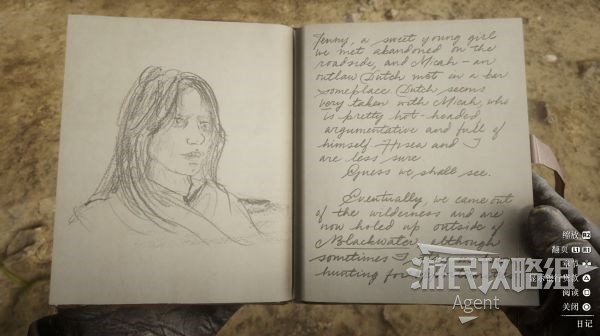 Jenny, a sweet young girl
we met abandoned on the
roadside, and Micah – an
outlaw Dutch met in a bar
someplace Dutch seems
very taken with Micah, who
is pretty hot-headed,
argumentative and full of
himself. Hosea and I
are less sure.
Guess we shall see.
Eventually, we came out
of the wilderness and are
now holed up outside of
Blackwater, although
sometimes I
hunting for
游民攻略组
Agent
缩放 R2
翻页 L1 R1
阅读
关闭
日记